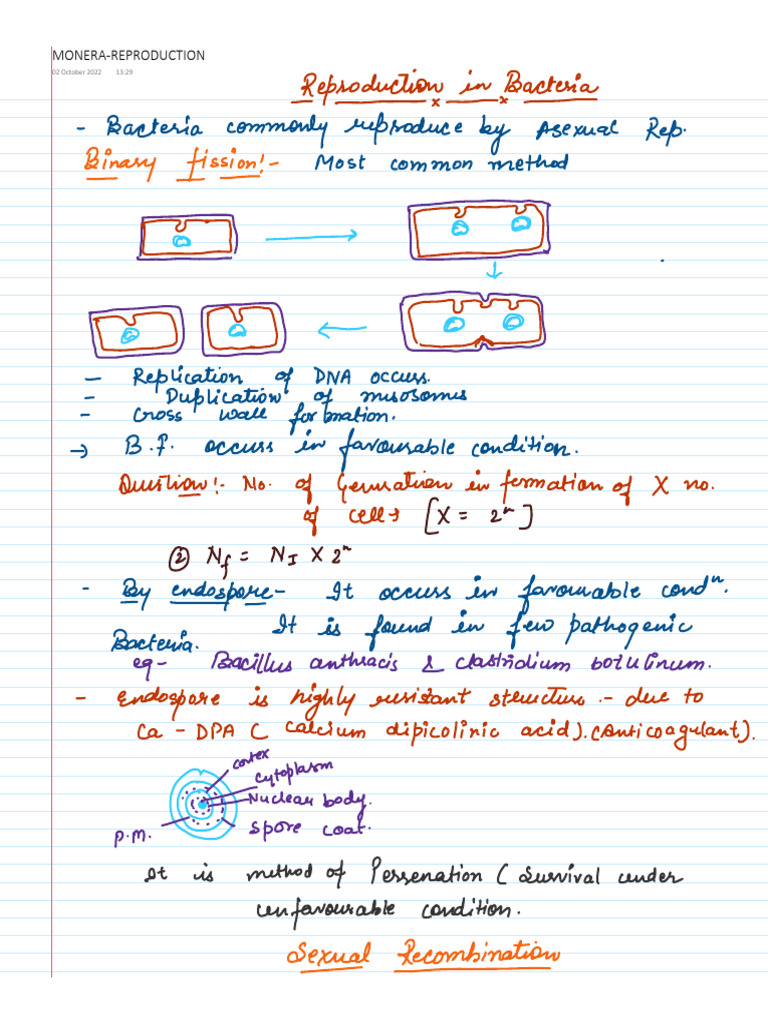 MONERA-REPRODUCTION
02 October 2022 13:29
Reproduction in Bacteria
- Bacteria commonly reproduce by Asexual Rep.
Binary fission!- Most common method
- Replication of DNA occurs.
- Duplication of misosoms
- Cross wall formation.
→ B.f. occurs in favourable condition.
Question!- No. of Generation in formation of X no.
of cell→ [X = 2ⁿ]
② Nf = NI X 2ⁿ
- By endospore- It occurs in favourable condⁿ.
It is found in few pathogenic
Bacteria.
eg- Bacillus anthracis & clastridium botulinum.
- Endospore is highly resistant structure.- due to
Ca - DPA ( calcium dipicolinic acid). (Anticoagulant).
cortex
cytoplasm
Nuclear body.
P.M. spore coat.
It is method of Perenation ( Survival under
unfavourable condition.
Sexual Recombination